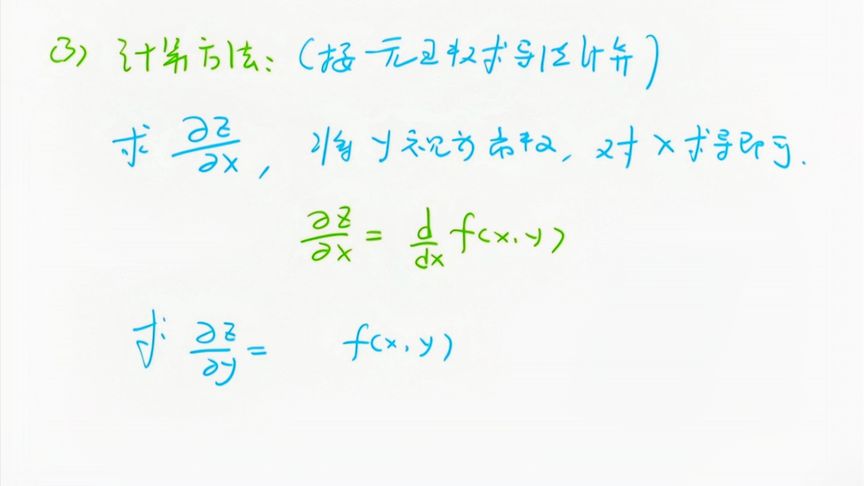 (3) 计算方法:(按一元函数求导法计算)
求 ∂z/∂x, 将 y 视为常数, 对 x 求导即可.
∂z/∂x = d/dx f(x,y)
求 ∂z/∂y = f(x,y)